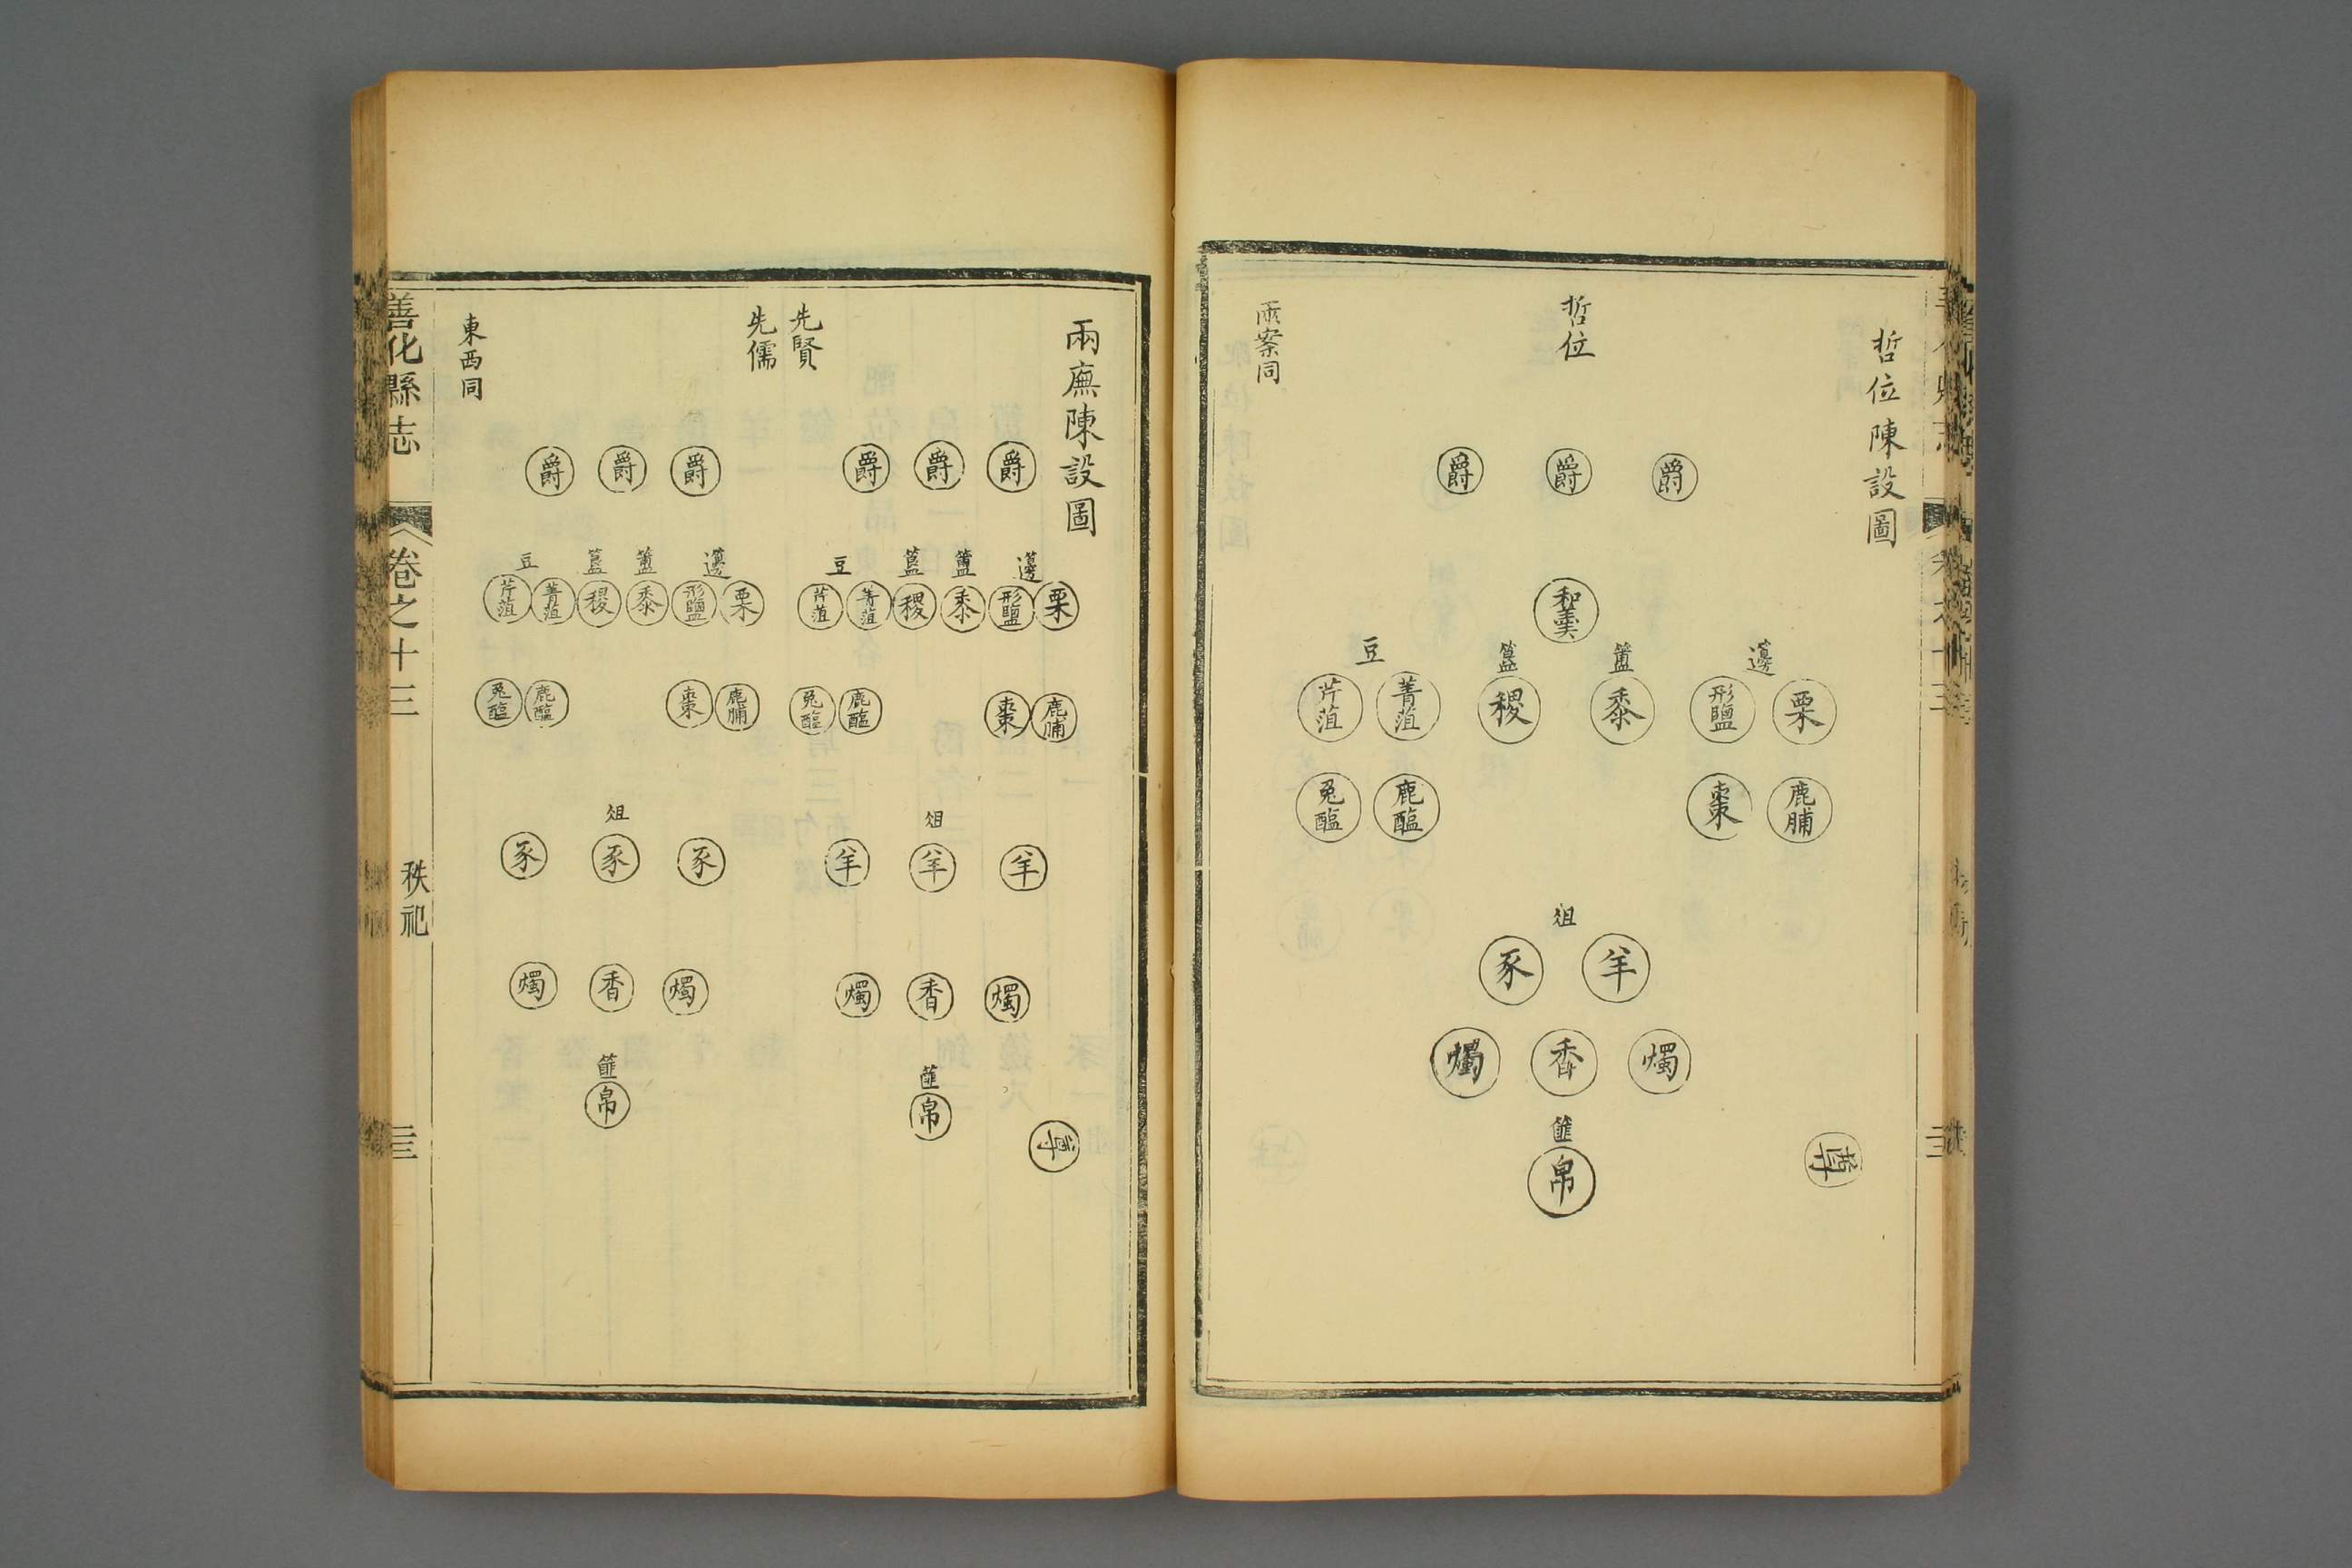 哲位陳設圖
哲位
兩案同
爵 爵 爵
和羹
籩 簠 簋 豆
栗 形鹽 黍 稷 菁菹 芹菹
鹿脯 棗 鹿醢 兔醢
俎
羊 豕
燭 香 燭
篚
帛
尊
兩廡陳設圖
先賢
先儒
東西同
爵 爵 爵 爵 爵 爵
籩 簠 簋 豆 籩 簠 簋 豆
栗 形鹽 黍 稷 菁菹 芹菹 栗 形鹽 黍 稷 菁菹 芹菹
鹿脯 棗 鹿醢 兔醢 鹿脯 棗 鹿醢 兔醢
俎 俎
羊 羊 羊 豕 豕 豕
燭 香 燭 燭 香 燭
篚 篚
帛 帛
尊
善化縣志 卷之十三 秩祀